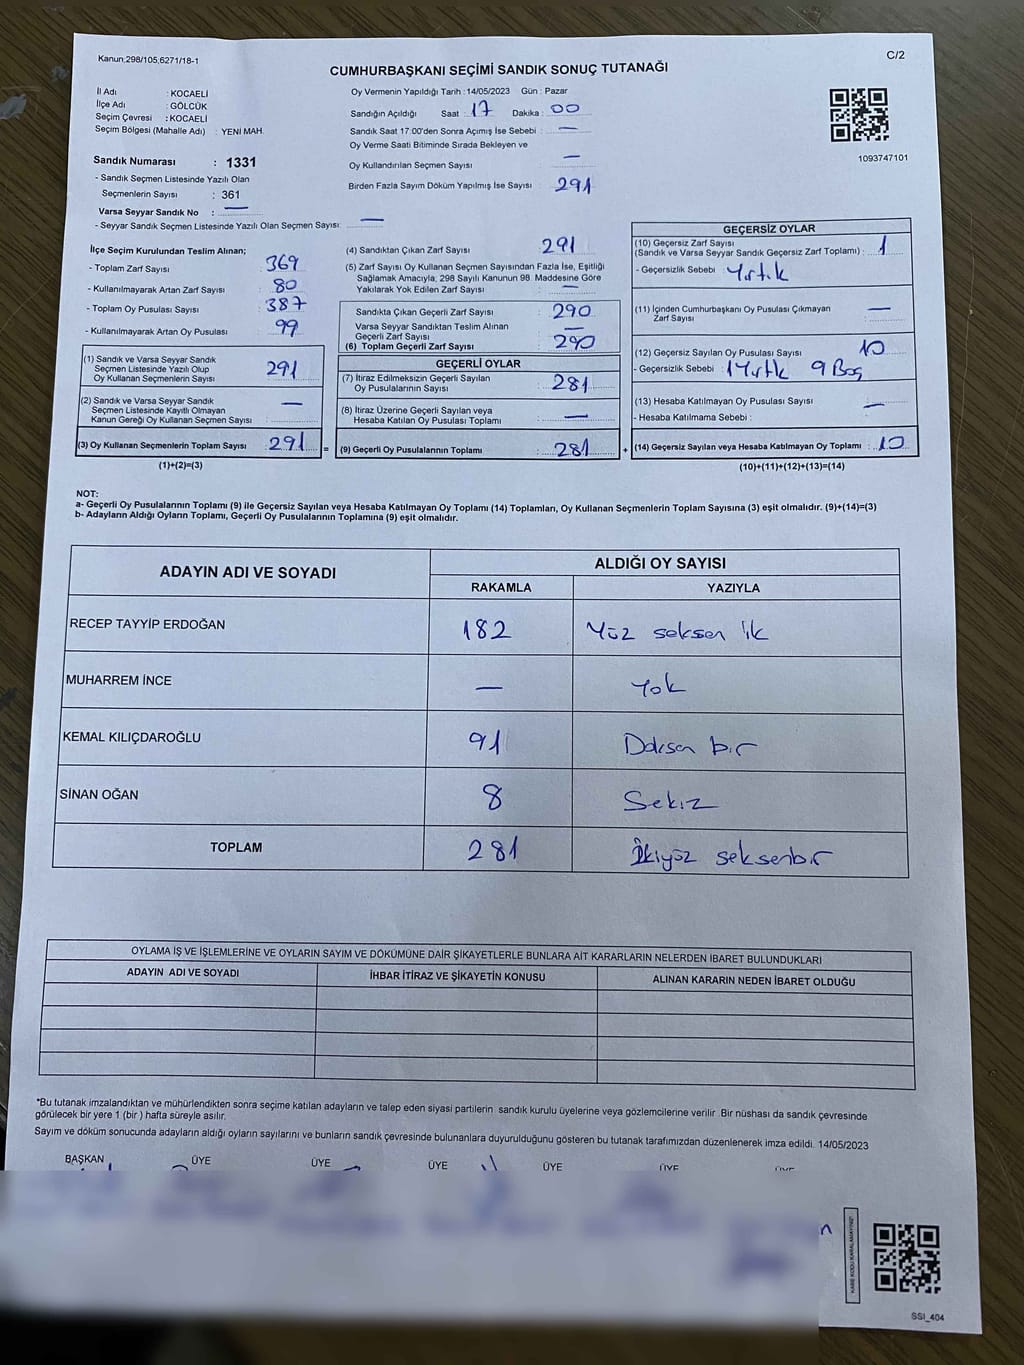 Kanun;298/105,6271/18-1
C/2
CUMHURBAŞKANI SEÇİMİ SANDIK SONUÇ TUTANAĞI
İl Adı : KOCAELİ
İlçe Adı : GÖLCÜK
Seçim Çevresi : KOCAELİ
Seçim Bölgesi (Mahalle Adı) : YENİ MAH.
Sandık Numarası : 1331
- Sandık Seçmen Listesinde Yazılı Olan
Seçmenlerin Sayısı : 361
Varsa Seyyar Sandık No : —
- Seyyar Sandık Seçmen Listesinde Yazılı Olan Seçmen Sayısı: —
Oy Vermenin Yapıldığı Tarih : 14/05/2023 Gün : Pazar
Sandığın Açıldığı Saat : 17 Dakika : 00
Sandık Saat 17:00'den Sonra Açımış İse Sebebi : —
Oy Verme Saati Bitiminde Sırada Bekleyen ve
Oy Kullandırılan Seçmen Sayısı —
Birden Fazla Sayım Döküm Yapılmış İse Sayısı : 291
1093747101
İlçe Seçim Kurulundan Teslim Alınan;
- Toplam Zarf Sayısı : 369
- Kullanılmayarak Artan Zarf Sayısı : 80
- Toplam Oy Pusulası Sayısı : 387
- Kullanılmayarak Artan Oy Pusulası : 99
(1) Sandık ve Varsa Seyyar Sandık
Seçmen Listesinde Yazılı Olup
Oy Kullanan Seçmenlerin Sayısı : 291
(2) Sandık ve Varsa Seyyar Sandık
Seçmen Listesinde Kayıtlı Olmayan
Kanun Gereği Oy Kullanan Seçmen Sayısı : —
(3) Oy Kullanan Seçmenlerin Toplam Sayısı : 291
(1)+(2)=(3)
(4) Sandıktan Çıkan Zarf Sayısı : 291
(5) Zarf Sayısı Oy Kullanan Seçmen Sayısından Fazla İse, Eşitliği
Sağlamak Amacıyla, 298 Sayılı Kanunun 98. Maddesine Göre
Yakılarak Yok Edilen Zarf Sayısı : —
Sandıkta Çıkan Geçerli Zarf Sayısı : 290
Varsa Seyyar Sandıktan Teslim Alınan
Geçerli Zarf Sayısı : —
(6) Toplam Geçerli Zarf Sayısı : 290
GEÇERLİ OYLAR
(7) İtiraz Edilmeksizin Geçerli Sayılan
Oy Pusulalarının Sayısı : 281
(8) İtiraz Üzerine Geçerli Sayılan veya
Hesaba Katılan Oy Pusulası Toplamı : —
= (9) Geçerli Oy Pusulalarının Toplamı : 281 +
GEÇERSİZ OYLAR
(10) Geçersiz Zarf Sayısı
(Sandık ve Varsa Seyyar Sandık Geçersiz Zarf Toplamı) : 1
- Geçersizlik Sebebi : Yırtık
(11) İçinden Cumhurbaşkanı Oy Pusulası Çıkmayan
Zarf Sayısı : —
(12) Geçersiz Sayılan Oy Pusulası Sayısı : 10
- Geçersizlik Sebebi : 1 Yırtık 9 Boş
(13) Hesaba Katılmayan Oy Pusulası Sayısı : —
- Hesaba Katılmama Sebebi :
(14) Geçersiz Sayılan veya Hesaba Katılmayan Oy Toplamı : 10
(10)+(11)+(12)+(13)=(14)
NOT:
a- Geçerli Oy Pusulalarının Toplamı (9) ile Geçersiz Sayılan veya Hesaba Katılmayan Oy Toplamı (14) Toplamları, Oy Kullanan Seçmenlerin Toplam Sayısına (3) eşit olmalıdır. (9)+(14)=(3)
b- Adayların Aldığı Oyların Toplamı, Geçerli Oy Pusulalarının Toplamına (9) eşit olmalıdır.
ADAYIN ADI VE SOYADI ALDIĞI OY SAYISI
RAKAMLA YAZIYLA
RECEP TAYYİP ERDOĞAN 182 Yüz seksen ik
MUHARREM İNCE — Yok
KEMAL KILIÇDAROĞLU 91 Doksan bir
SİNAN OĞAN 8 Sekiz
TOPLAM 281 İkiyüz seksenbir
OYLAMA İŞ VE İŞLEMLERİNE VE OYLARIN SAYIM VE DÖKÜMÜNE DAİR ŞİKAYETLERLE BUNLARA AİT KARARLARIN NELERDEN İBARET BULUNDUKLARI
ADAYIN ADI VE SOYADI İHBAR İTİRAZ VE ŞİKAYETİN KONUSU ALINAN KARARIN NEDEN İBARET OLDUĞU
*Bu tutanak imzalandıktan ve mühürlendikten sonra seçime katılan adayların ve talep eden siyasi partilerin sandık kurulu üyelerine veya gözlemcilerine verilir .Bir nüshası da sandık çevresinde
görülecek bir yere 1 (bir ) hafta süreyle asılır.
Sayım ve döküm sonucunda adayların aldığı oyların sayılarını ve bunların sandık çevresinde bulunanlara duyurulduğunu gösteren bu tutanak tarafımızdan düzenlenerek imza edildi. 14/05/2023
BAŞKAN ÜYE ÜYE ÜYE ÜYE ÜYE ÜYE
KARE KODU KARALAMAYINIZ*
SSI_404